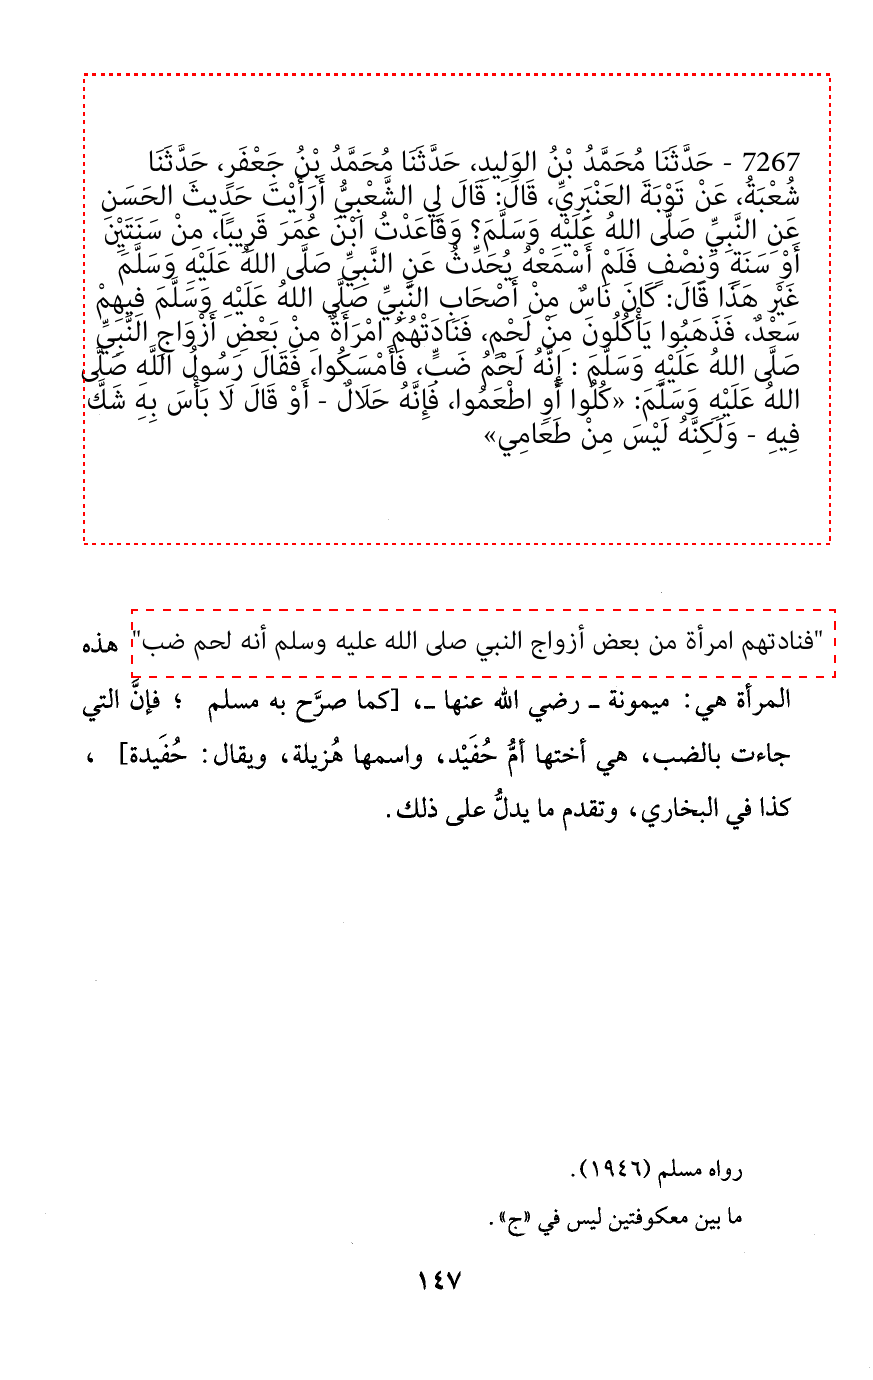 7267 - حَدَّثَنَا مُحَمَّدُ بْنُ الوَلِيدِ، حَدَّثَنَا مُحَمَّدُ بْنُ جَعْفَرٍ، حَدَّثَنَا
شُعْبَةُ، عَنْ تَوْبَةَ العَنْبَرِيِّ، قَالَ: قَالَ لِي الشَّعْبِيُّ أَرَأَيْتَ حَدِيثَ الحَسَنِ
عَنِ النَّبِيِّ صَلَّى اللهُ عَلَيْهِ وَسَلَّمَ؟ وَقَاعَدْتُ ابْنَ عُمَرَ قَرِيبًا، مِنْ سَنَتَيْنِ
أَوْ سَنَةٍ وَنِصْفٍ فَلَمْ أَسْمَعْهُ يُحَدِّثُ عَنِ النَّبِيِّ صَلَّى اللهُ عَلَيْهِ وَسَلَّمَ
غَيْرَ هَذَا قَالَ: كَانَ نَاسٌ مِنْ أَصْحَابِ النَّبِيِّ صَلَّى اللهُ عَلَيْهِ وَسَلَّمَ فِيهِمْ
سَعْدٌ، فَذَهَبُوا يَأْكُلُونَ مِنْ لَحْمٍ، فَنَادَتْهُمُ امْرَأَةٌ مِنْ بَعْضِ أَزْوَاجِ النَّبِيِّ
صَلَّى اللهُ عَلَيْهِ وَسَلَّمَ : إِنَّهُ لَحْمُ ضَبٍّ، فَأَمْسَكُوا، فَقَالَ رَسُولُ اللَّهِ صَلَّى
اللهُ عَلَيْهِ وَسَلَّمَ: «كُلُوا أَوِ اطْعَمُوا، فَإِنَّهُ حَلَالٌ - أَوْ قَالَ لَا بَأْسَ بِهِ شَكَّ
فِيهِ - وَلَكِنَّهُ لَيْسَ مِنْ طَعَامِي»
"فنادتهم امرأة من بعض أزواج النبي صلى الله عليه وسلم أنه لحم ضب" هذه
المرأة هي: ميمونة ـ رضي الله عنها ـ، [كما صرَّح به مسلم ؛ فإنَّ التي
جاءت بالضب، هي أختها أمُّ حُفَيْد، واسمها هُزيلة، ويقال: حُفَيدة] ،
كذا في البخاري، وتقدم ما يدلُّ على ذلك.
رواه مسلم (١٩٤٦).
ما بين معكوفتين ليس في «ج».
١٤٧